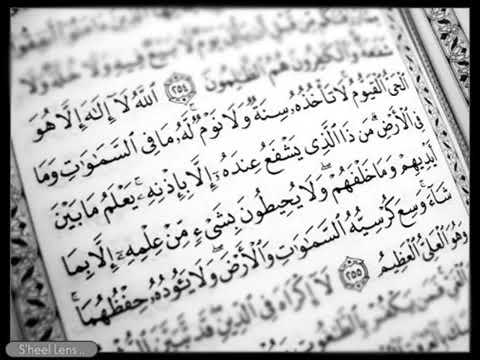 شفعة والكفرون هم الظلمون ٢٥٤ الله لا إله إلا هو
الحي القيوم لا تأخذه سنة ولا نوم له ما في السموت وما
في الأرض من ذا الذي يشفع عنده إلا بإذنه يعلم ما بين
أيديهم وما خلفهم ولا يحيطون بشيء من علمه إلا بما
شاء وسع كرسيه السموت والأرض ولا يئوده حفظهما
وهو العلي العظيم ٢٥٥ لا إكراه في الدين قد تبين
S'heel Lens ..